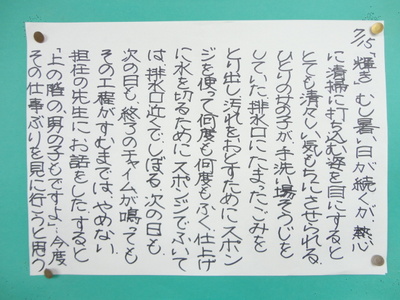 7/15「輝き」むし暑い日が続くが、熱心
に清掃に打ち込む姿を目にすると
とても清々しい気もちにさせられる。
ひとりの女の子が手洗い場そうじを
していた。排水口にたまったごみを
とり出し、汚れをおとすためにスポン
ジを使って何度も何度もふく。仕上げ
に水を切るためにスポンジでふいて
は、排水口近くでしぼる。次の日も、
次の日も、終了のチャイムが鳴っても
その工程がすむまでは、やめない。
担任の先生にお話をしたすると
「上の階の男の子もですよ」…今度
その仕事ぶりを見に行こうと思う